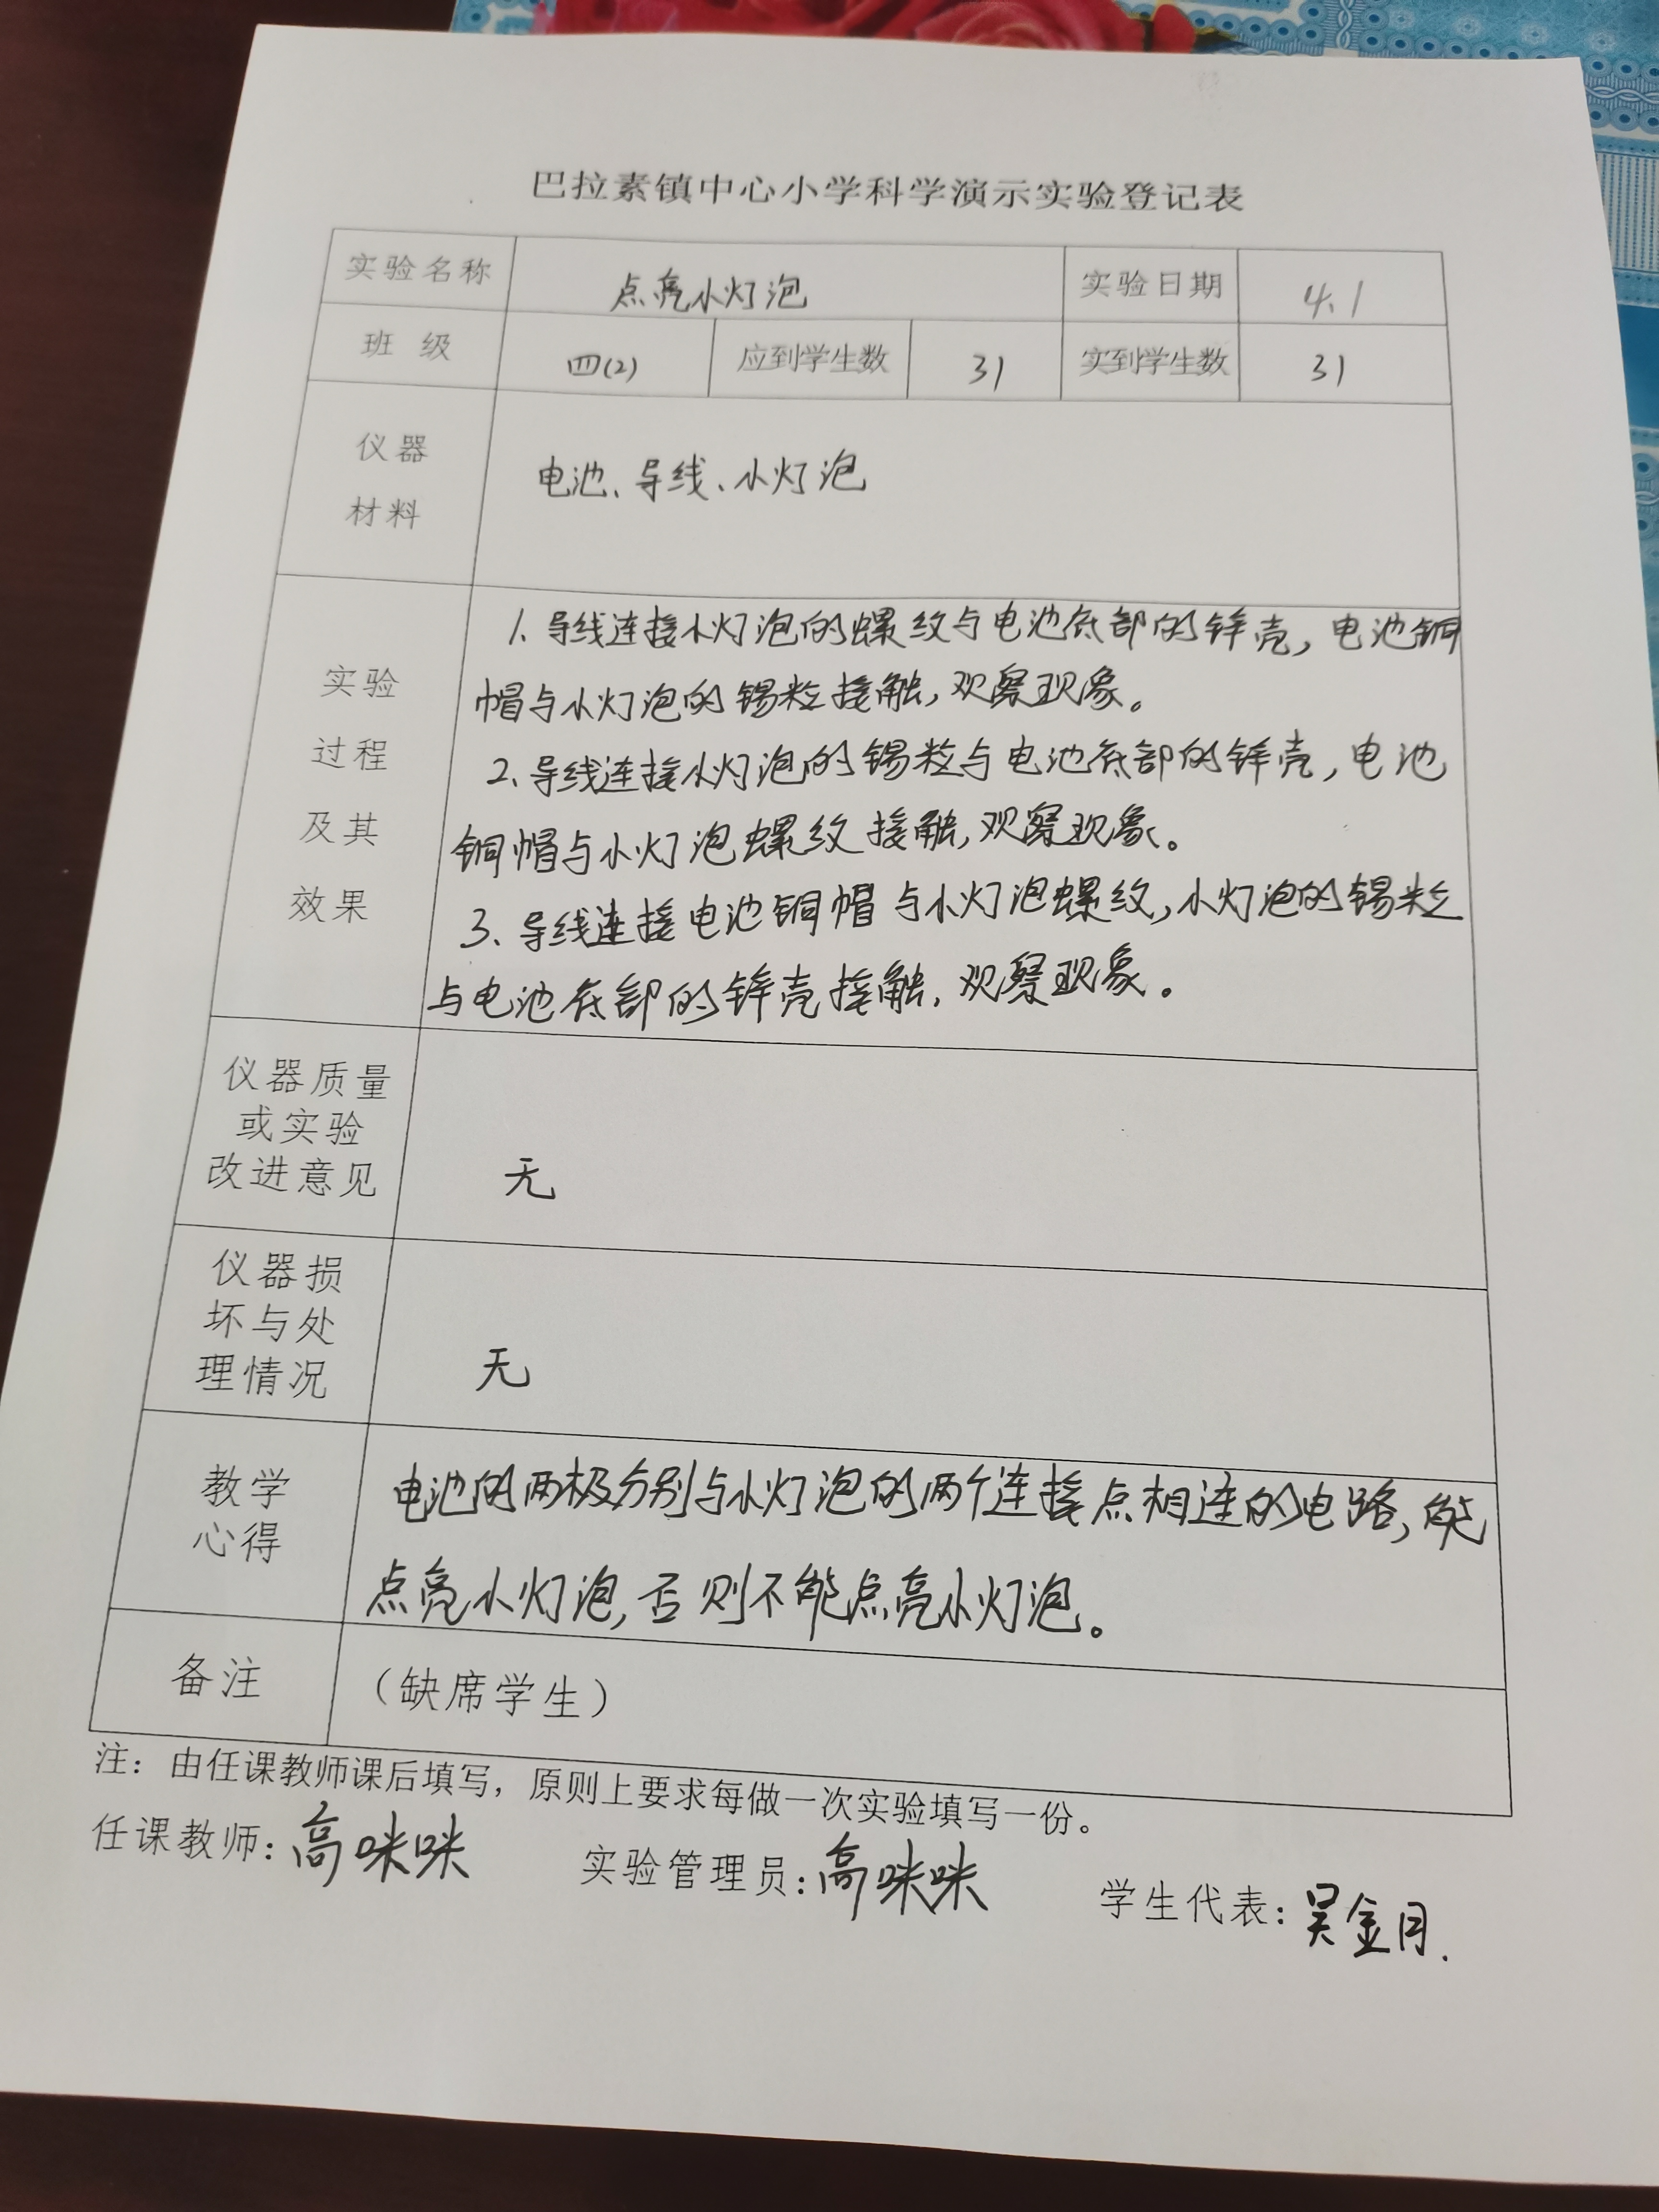 巴拉素镇中心小学科学演示实验登记表
实验名称 点亮小灯泡 实验日期 4.1
班 级 四(2) 应到学生数 31 实到学生数 31
仪器
材料
电池、导线、小灯泡
实验
过程
及其
效果
1、导线连接小灯泡的螺纹与电池底部的锌壳,电池铜
帽与小灯泡的锡粒接触,观察现象。
2、导线连接小灯泡的锡粒与电池底部的锌壳,电池
铜帽与小灯泡螺纹接触,观察现象。
3、导线连接电池铜帽与小灯泡螺纹,小灯泡的锡粒
与电池底部的锌壳接触,观察现象。
仪器质量
或实验
改进意见
无
仪器损
坏与处
理情况
无
教学
心得
电池的两极分别与小灯泡的两个连接点相连的电路,能
点亮小灯泡,否则不能点亮小灯泡。
备注 (缺席学生)
注:由任课教师课后填写,原则上要求每做一次实验填写一份。
任课教师:高咪咪 实验管理员:高咪咪 学生代表:吴金月.